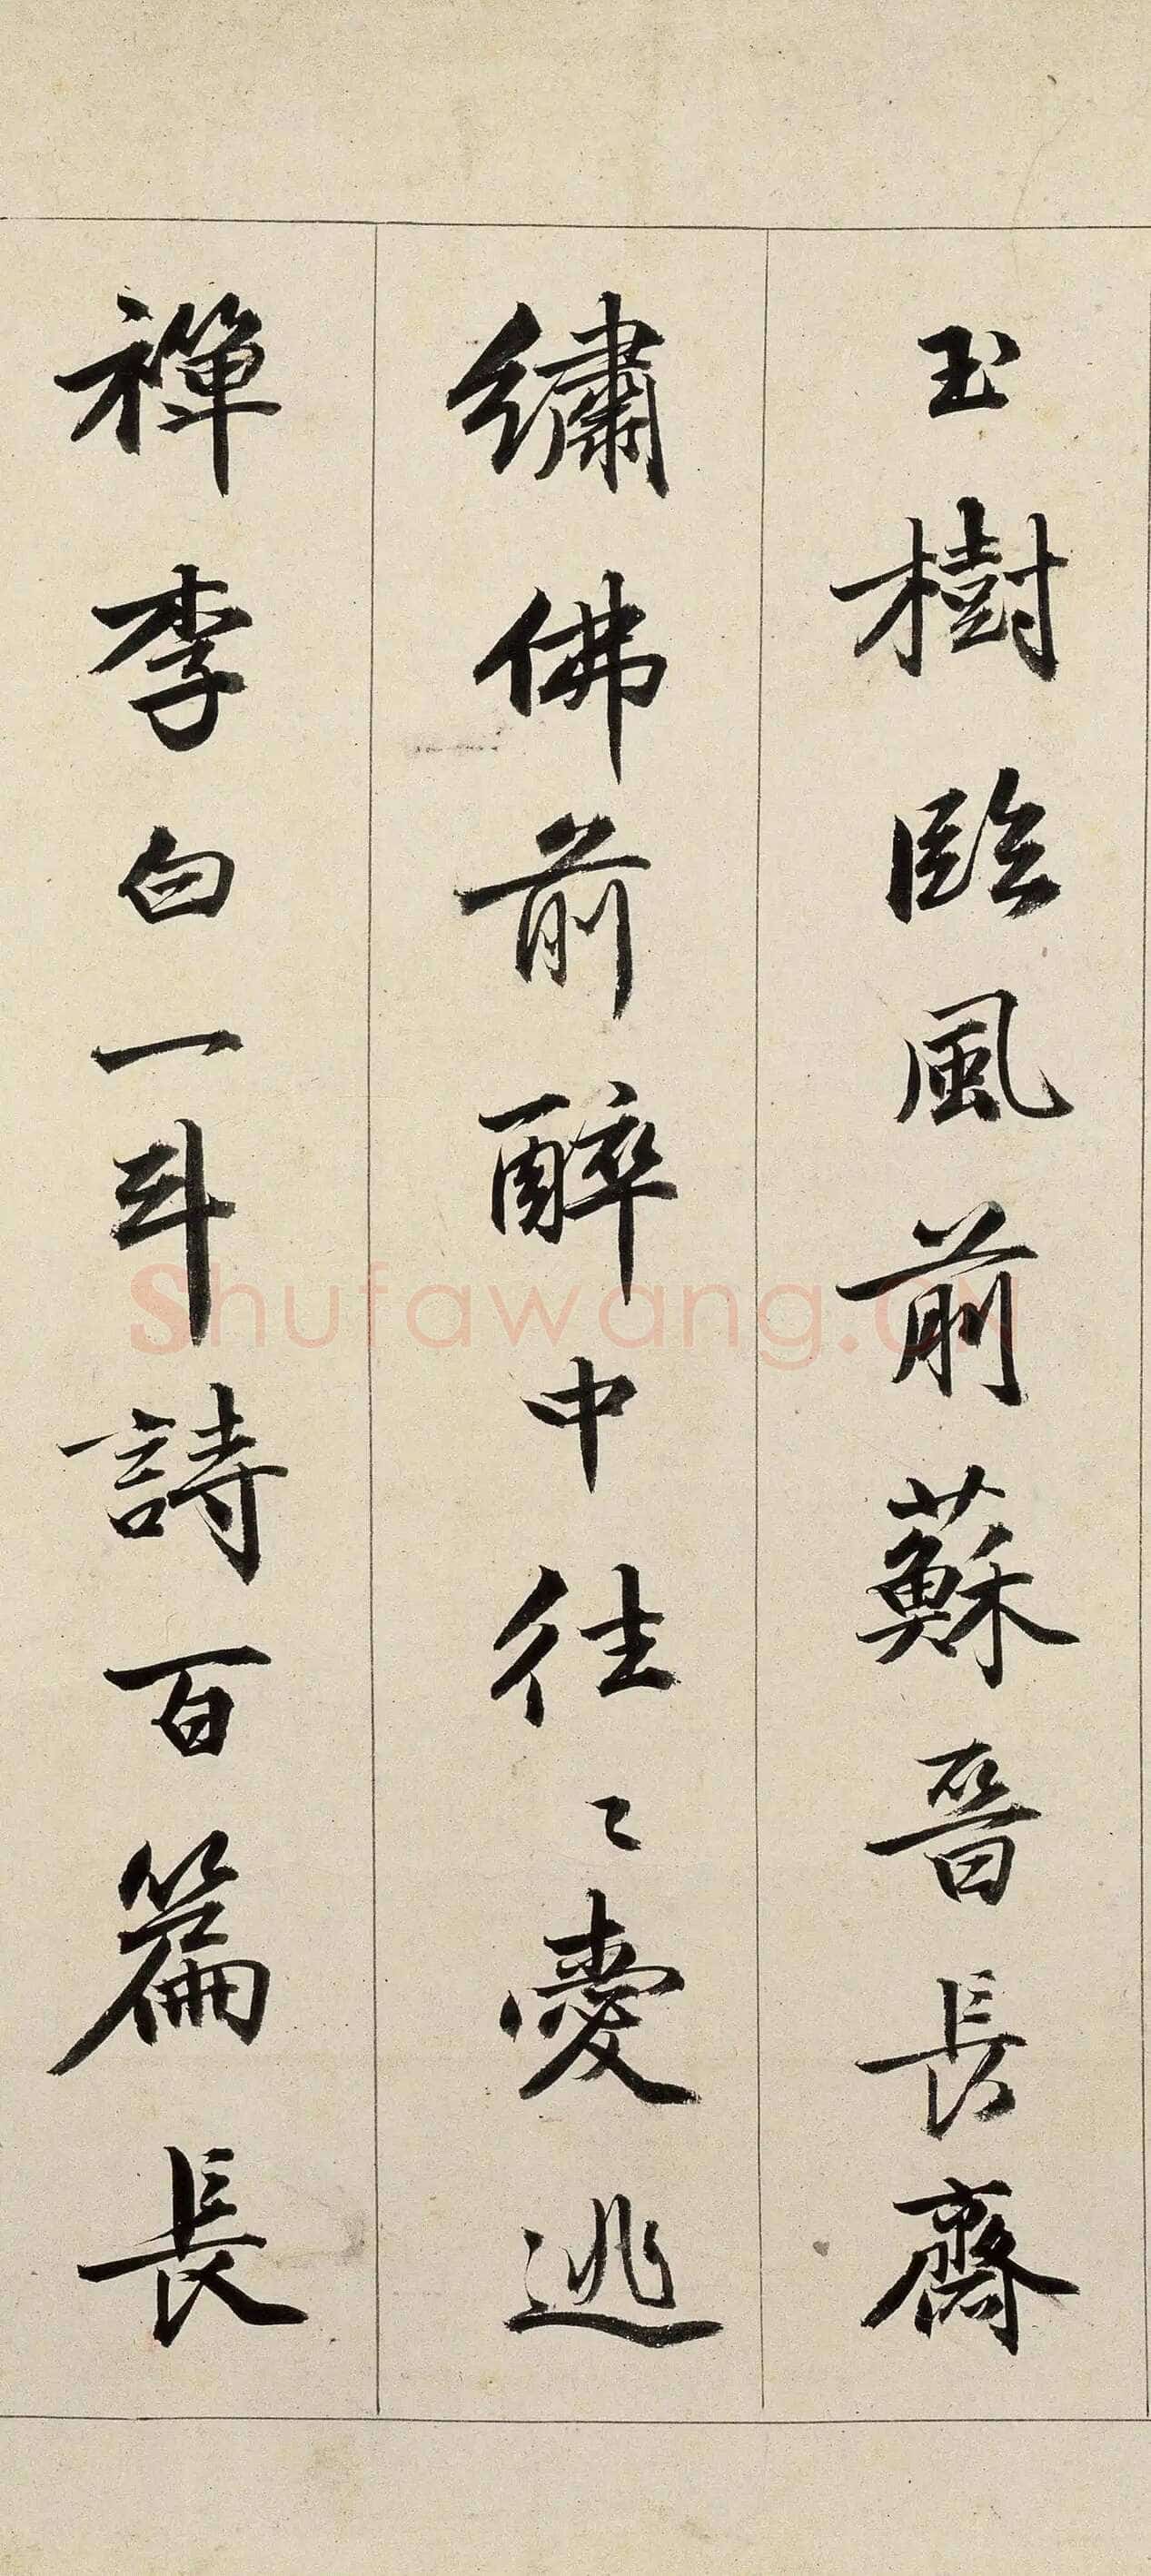 玉樹臨風前蘇晉長齋
繡佛前醉中往〻愛逃
禪李白一斗詩百篇長
shufawang.cn